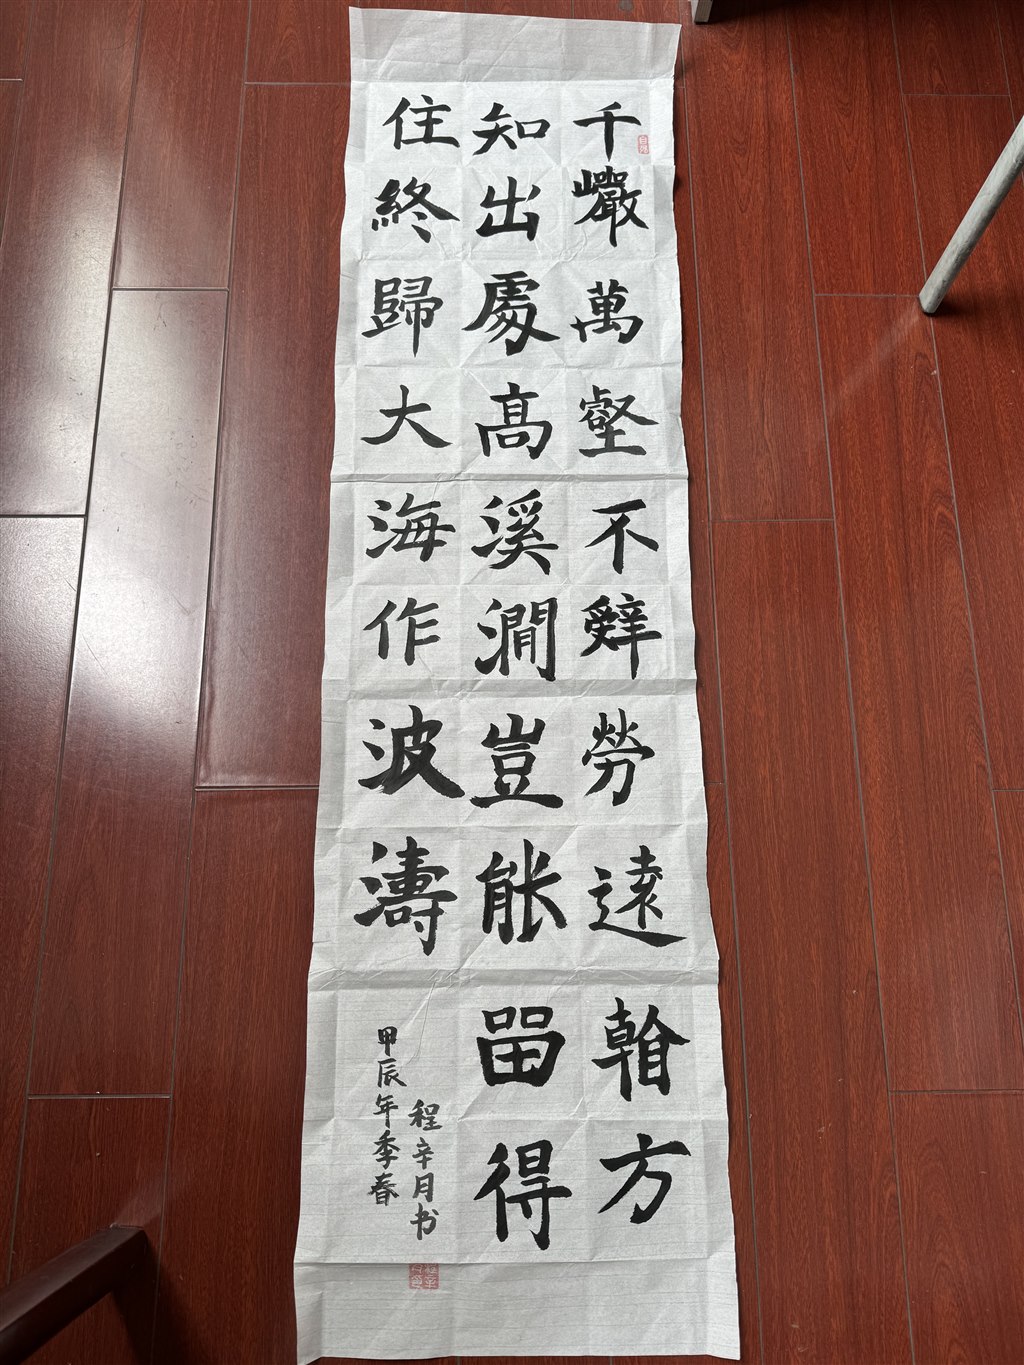 千巖萬壑不辤勞遠看方
知出處高溪澗豈能留得
住終歸大海作波濤
甲辰年季春
程辛月书